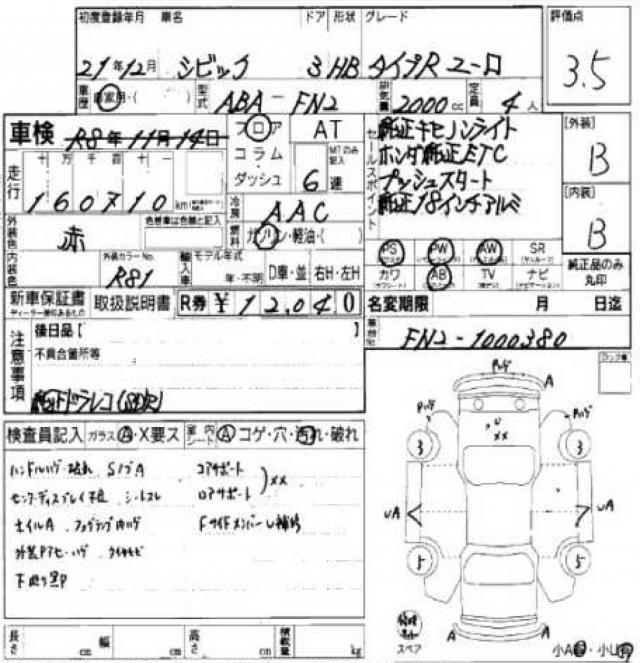 初度登録年月 車名 ドア 形状 グレード 評価点
21年12月 シビック 3 HB タイプR ユーロ 3.5
車歴 自家用・( ) 型式 ABA-FN2 排気量 2000cc 定員 4人
車検 R8年 11月 14日 フロア AT セールスポイント 純正キセノンライト [外装]
コラム MTのみ記入 ホンダ純正ETC B
走行 十 万 千 百 十 一 ダッシュ 6速 プッシュスタート
160710km 冷房 AAC 純正18インチアルミ [内装]
外装色 赤 色替車は元色と記入 燃料 ガソリン・軽油・( ) B
PS PW AW SR
内装色 外装カラーNo. R81 輸入車 モデル年式 年・不明 D車・並 右H・左H カワ AB TV ナビ 純正品のみ丸印
新車保証書 取扱説明書 R券 ¥12,040 名変期限 月 日迄
ディーラー印のあるもの
注意事項 後日品[ ] 車台No. FN2-1000380
不具合箇所等
純正ドラレコ
検査員記入 ガラス A・X要ス 室内シート A コゲ・穴・汚れ・破れ
ハンドルハゲ・破れ SノブA コアサポート
センターディスプレイ不良 シートスレ ロアサポート ××
ホイルA フォグランプ内ハゲ FサイドメンバーU補修
下廻り
A
××
3 3
UA UA
5 5
A A
スペア
長さ cm 幅 cm 高さ cm 積載量 kg 小A 小U